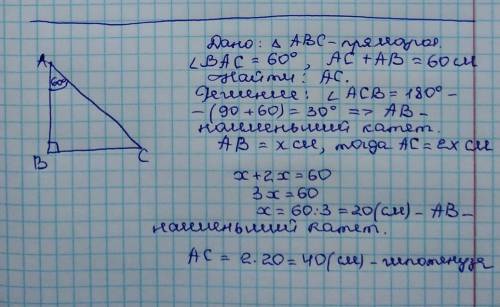 Дано: Δ ABC – прямоуг.
∠BAC = 60°, AC + AB = 60 см
Найти: AC.
Решение: ∠ACB = 180° –
– (90 + 60) = 30° => AB –
наименьший катет.
AB = x см, тогда AC = 2x см
x + 2x = 60
3x = 60
x = 60 : 3 = 20 (см) – AB –
наименьший катет.
AC = 2 · 20 = 40 (см) – гипотенуза
A
60°
B
C